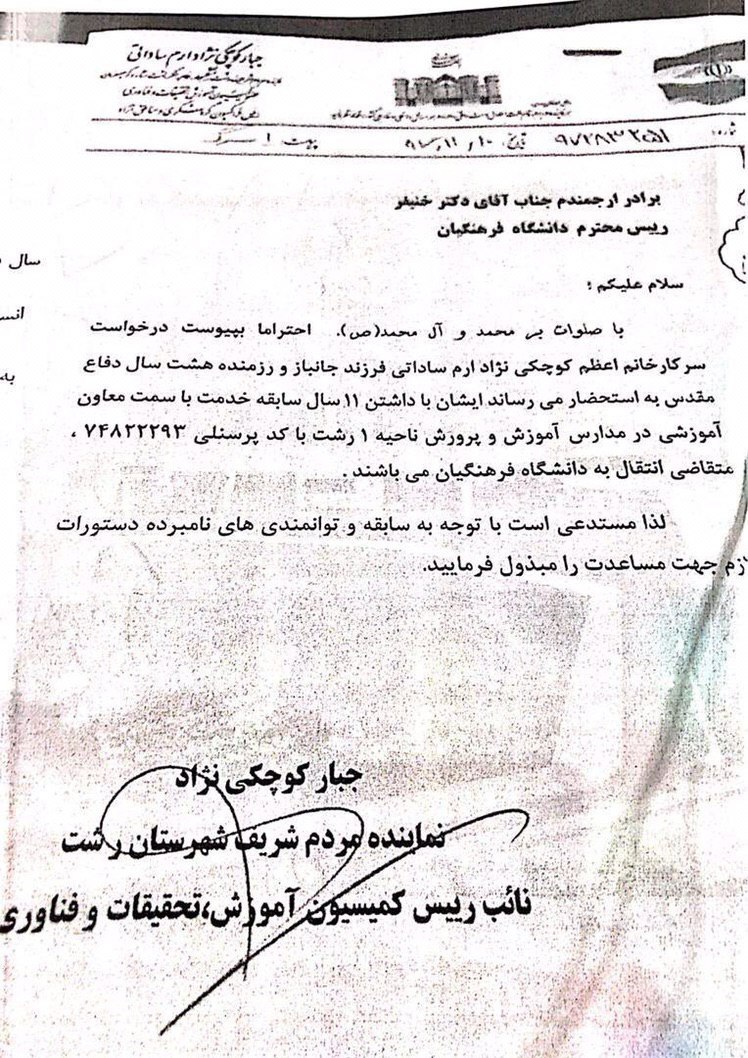 جبار کوچکی نژاد ارم ساداتی
شماره: ۹۷۲۸۳۲۵۱ تاریخ: ۹۷/۱۱/۱۰ پیوست ۱ برگ
برادر ارجمندم جناب آقای دکتر خنیفر
رییس محترم دانشگاه فرهنگیان
سلام علیکم ؛
با صلوات بر محمد و آل محمد(ص). احتراما بپیوست درخواست
سرکارخانم اعظم کوچکی نژاد ارم ساداتی فرزند جانباز و رزمنده هشت سال دفاع
مقدس به استحضار می رساند ایشان با داشتن ۱۱ سال سابقه خدمت با سمت معاون
آموزشی در مدارس آموزش و پرورش ناحیه ۱ رشت با کد پرسنلی ۷۴۸۲۲۲۹۳ ،
متقاضی انتقال به دانشگاه فرهنگیان می باشند .
لذا مستدعی است با توجه به سابقه و توانمندی های نامبرده دستورات
زم جهت مساعدت را مبذول فرمایید.
جبار کوچکی نژاد
نماینده مردم شریف شهرستان رشت
نائب رییس کمیسیون آموزش،تحقیقات و فناوری
سال
به